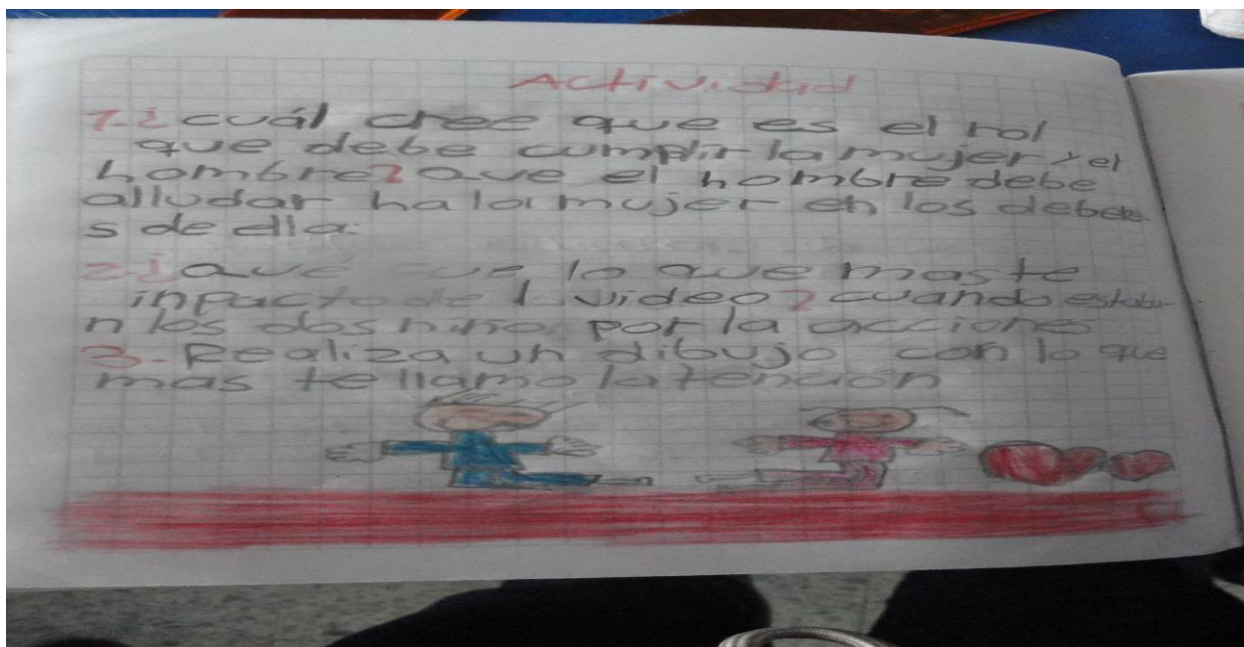 Actividad
1-¿cuál cree que es el rol
que debe cumplir la mujer y el
hombre? Que el hombre debe
alludar ha la mujer en los debere
s de ella.
2-¿Qué fue lo que mas te
inpacto de l video? cuando estaba
n los dos niño por la acciones
3- Realiza un dibujo con lo que
mas te llamo la tención